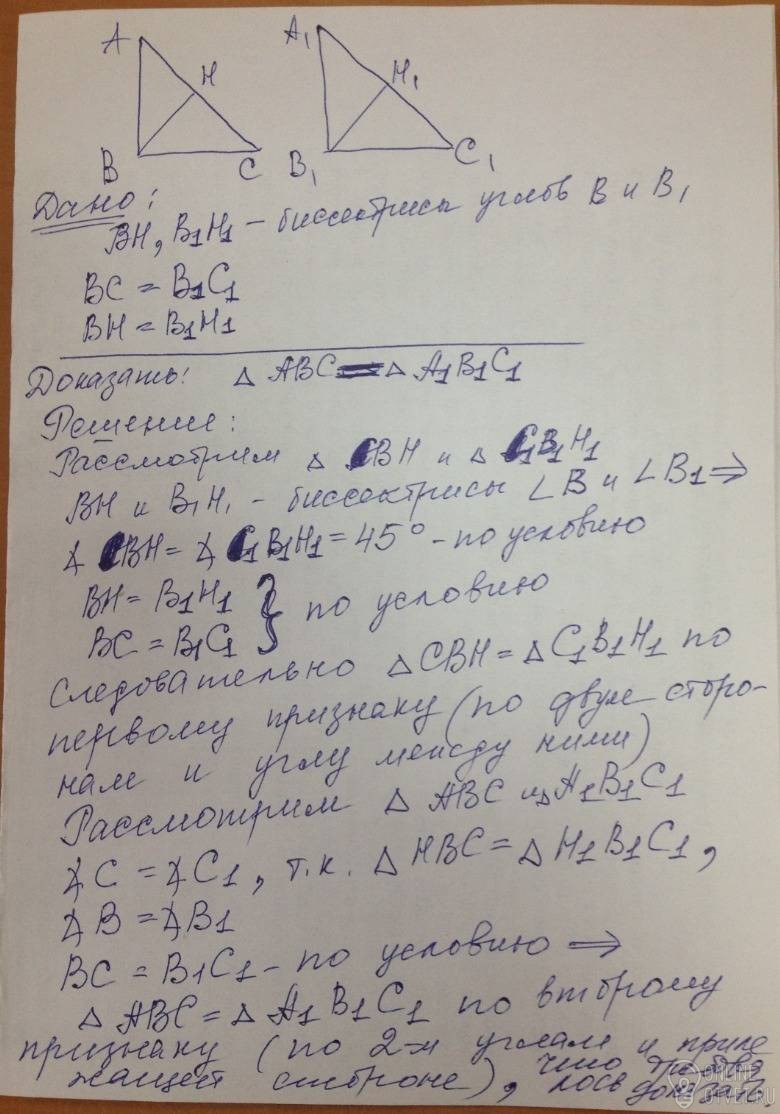 A A₁
H H₁
B C B₁ C₁
Дано:
BH, B₁H₁ – биссектрисы углов B и B₁
BC = B₁C₁
BH = B₁H₁
Доказать: △ ABC = △ A₁B₁C₁
Решение:
Рассмотрим △ CBH и △ C₁B₁H₁
BH и B₁H₁ – биссектрисы ∠B и ∠B₁ ⇒
∡ CBH = ∡ C₁B₁H₁ = 45° – по условию
BH = B₁H₁ } по условию
BC = B₁C₁
Следовательно △CBH = △C₁B₁H₁ по
первому признаку (по двум сторо-
нам и углу между ними)
Рассмотрим △ ABC и △ A₁B₁C₁
∡C = ∡C₁, т.к. △HBC = △H₁B₁C₁,
∡B = ∡B₁
BC = B₁C₁ – по условию ⇒
△ ABC = △ A₁B₁C₁ по второму
признаку (по 2-м углам и приле
жащей стороне), что требова
лось доказать
ONLINE
OTVET.RU